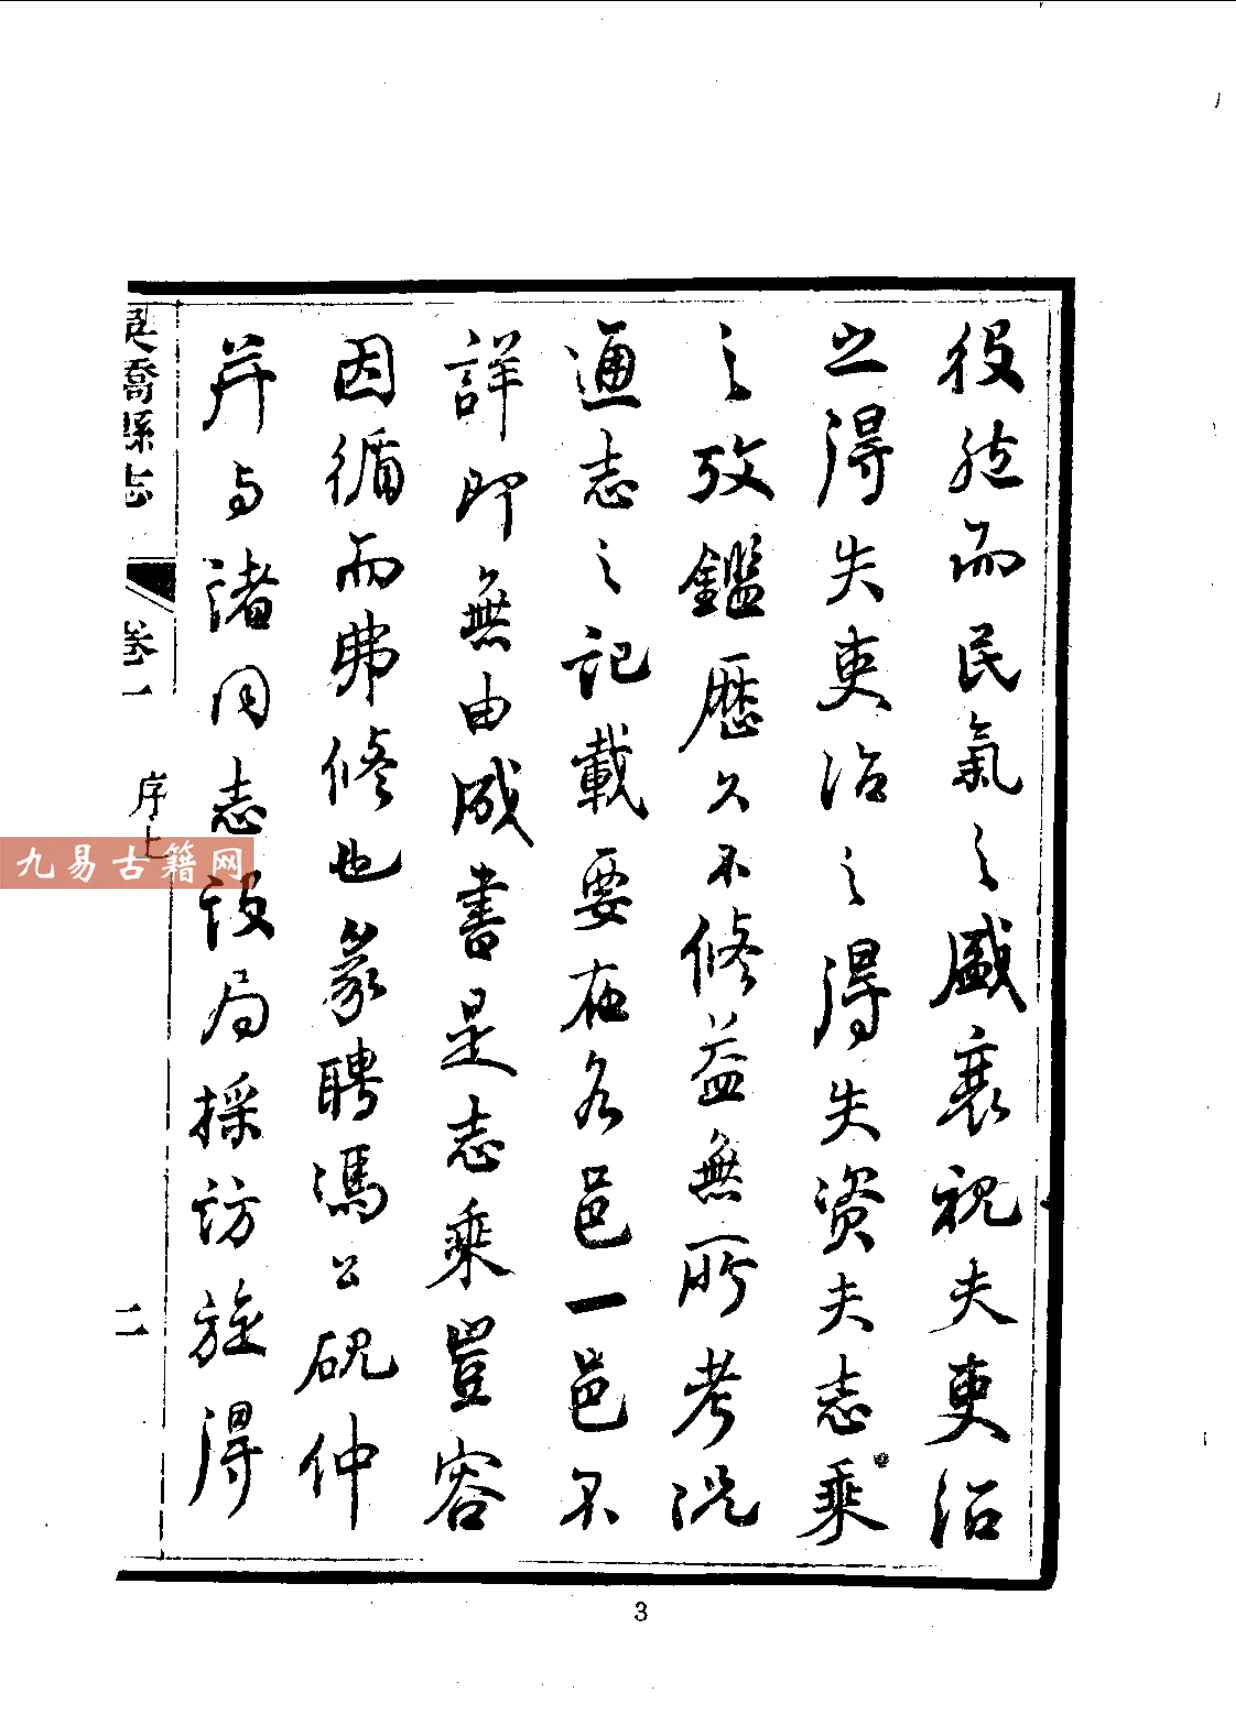 役然而民氣之盛衰視夫吏治
之得失吏治之得失資夫志乘
之攷鑑歷久不修益無所考況
通志之記載要在各邑一邑不
詳即無由成書是志乘豈容
因循而弗修也爰聘馮公硯仲
并与諸同志設局採訪旋得
吳橋縣志 卷一 序上 二
九易古籍网
3